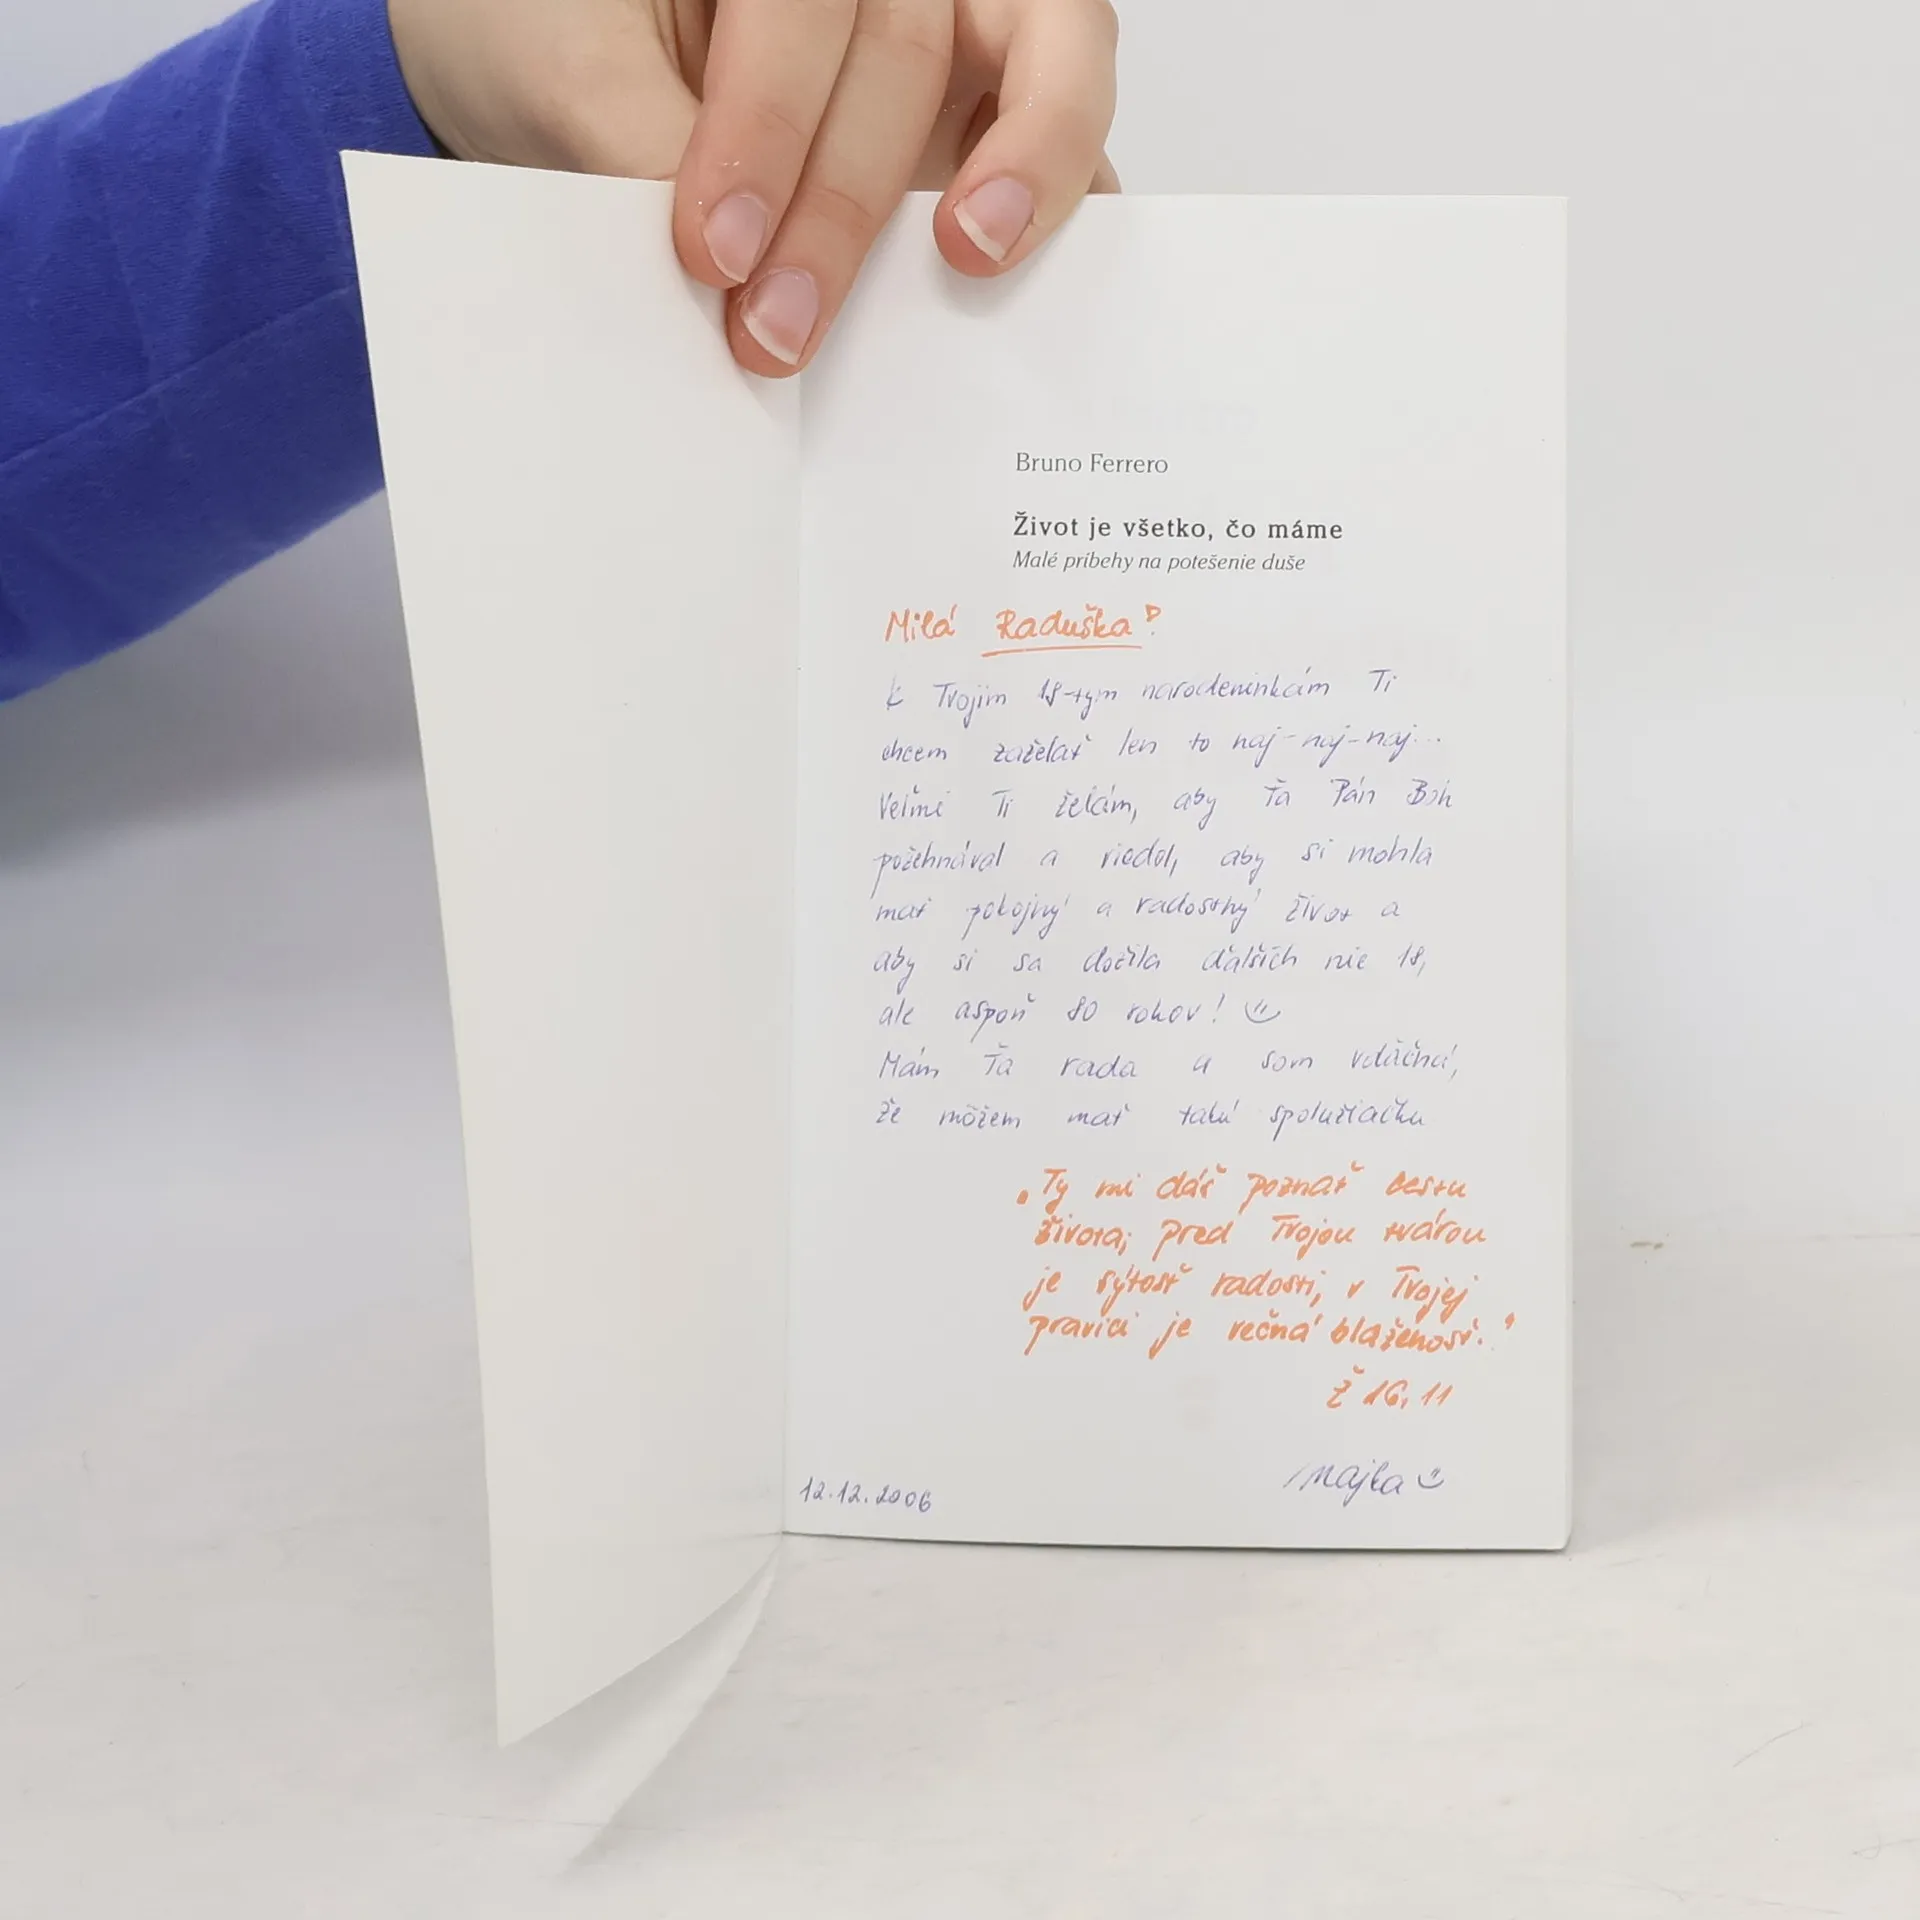 Bruno Ferrero
Život je všetko, čo máme
Malé príbehy na potešenie duše
Milá Raduška!
k Tvojim 18-tym narodeninkám Ti
chcem zaželať len to naj-naj-naj...
Veľmi Ti želám, aby Ťa Pán Boh
požehnával a viedol, aby si mohla
mať pokojný a radostný život a
aby si sa dožila ďalších nie 18,
ale aspoň 80 rokov!
Mám Ťa rada a som vďačná,
že môžem mať takú spolužiačku
„Ty mi dáš poznať cestu
života; pred Tvojou tvárou
je sýtosť radosti, v Tvojej
pravici je večná blaženosť."
Ž 16, 11
Majka
12.12.2006